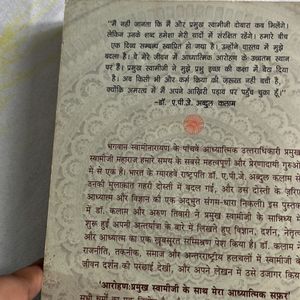 "मैं नहीं जानता कि मैं और प्रमुख स्वामीजी दोबारा कब मिलेंगे।
लेकिन उनके शब्द हमेशा मेरी यादों में संरक्षित रहेंगे। हमारे बीच
एक दिव्य सम्बन्ध स्थापित हो गया है। उन्होंने वास्तव में मुझे
बदला है। वे मेरे जीवन में आध्यात्मिक आरोहण के उच्चतम स्थान
पर हैं। प्रमुख स्वामीजी ने मुझे प्रभु इच्छा की कक्षा में बैठा दिया
है। अब किसी भी और कर्म क्रिया की जरूरत नहीं बची है,
क्योंकि अमरत्व में मैं अपने आखिरी पड़ाव पर पहुँच चुका हूँ।"
-डॉ. ए.पी.जे. अब्दुल कलाम
भगवान स्वामीनारायण के पाँचवें आध्यात्मिक उत्तराधिकारी प्रमुख
स्वामीजी महाराज हमारे समय के सबसे महत्त्वपूर्ण और प्रेरणादायी गुरुओं
में से एक हैं। भारत के ग्यारहवें राष्ट्रपति डॉ. ए.पी.जे. अब्दुल कलाम से
उनकी मुलाक़ात गहरी दोस्ती में बदल गई, और उस दोस्ती ने
अध्यात्म और विज्ञान की एक अद्भुत संगम-धारा निकली। इस पुस्तक
में डॉ. कलाम और अरुण तिवारी ने प्रमुख स्वामीजी के सान्निध्य में
शुरू हुई अपनी अन्तर्यात्रा के बारे में लिखते हुए विज्ञान, दर्शन, नेतृत्व
और अध्यात्म का एक खूबसूरत सम्मिश्रण पेश किया है। डॉ. कलाम
राजनीति, तकनीक, समाज और अन्तरराष्ट्रीय हलचलों में स्वामीजी के
जीवन दर्शन की परछाईं देखी, और अपने लेखन में उसे उजागर किया
'आरोहण: प्रमुख स्वामीजी के साथ मेरा आध्यात्मिक सफ़र'